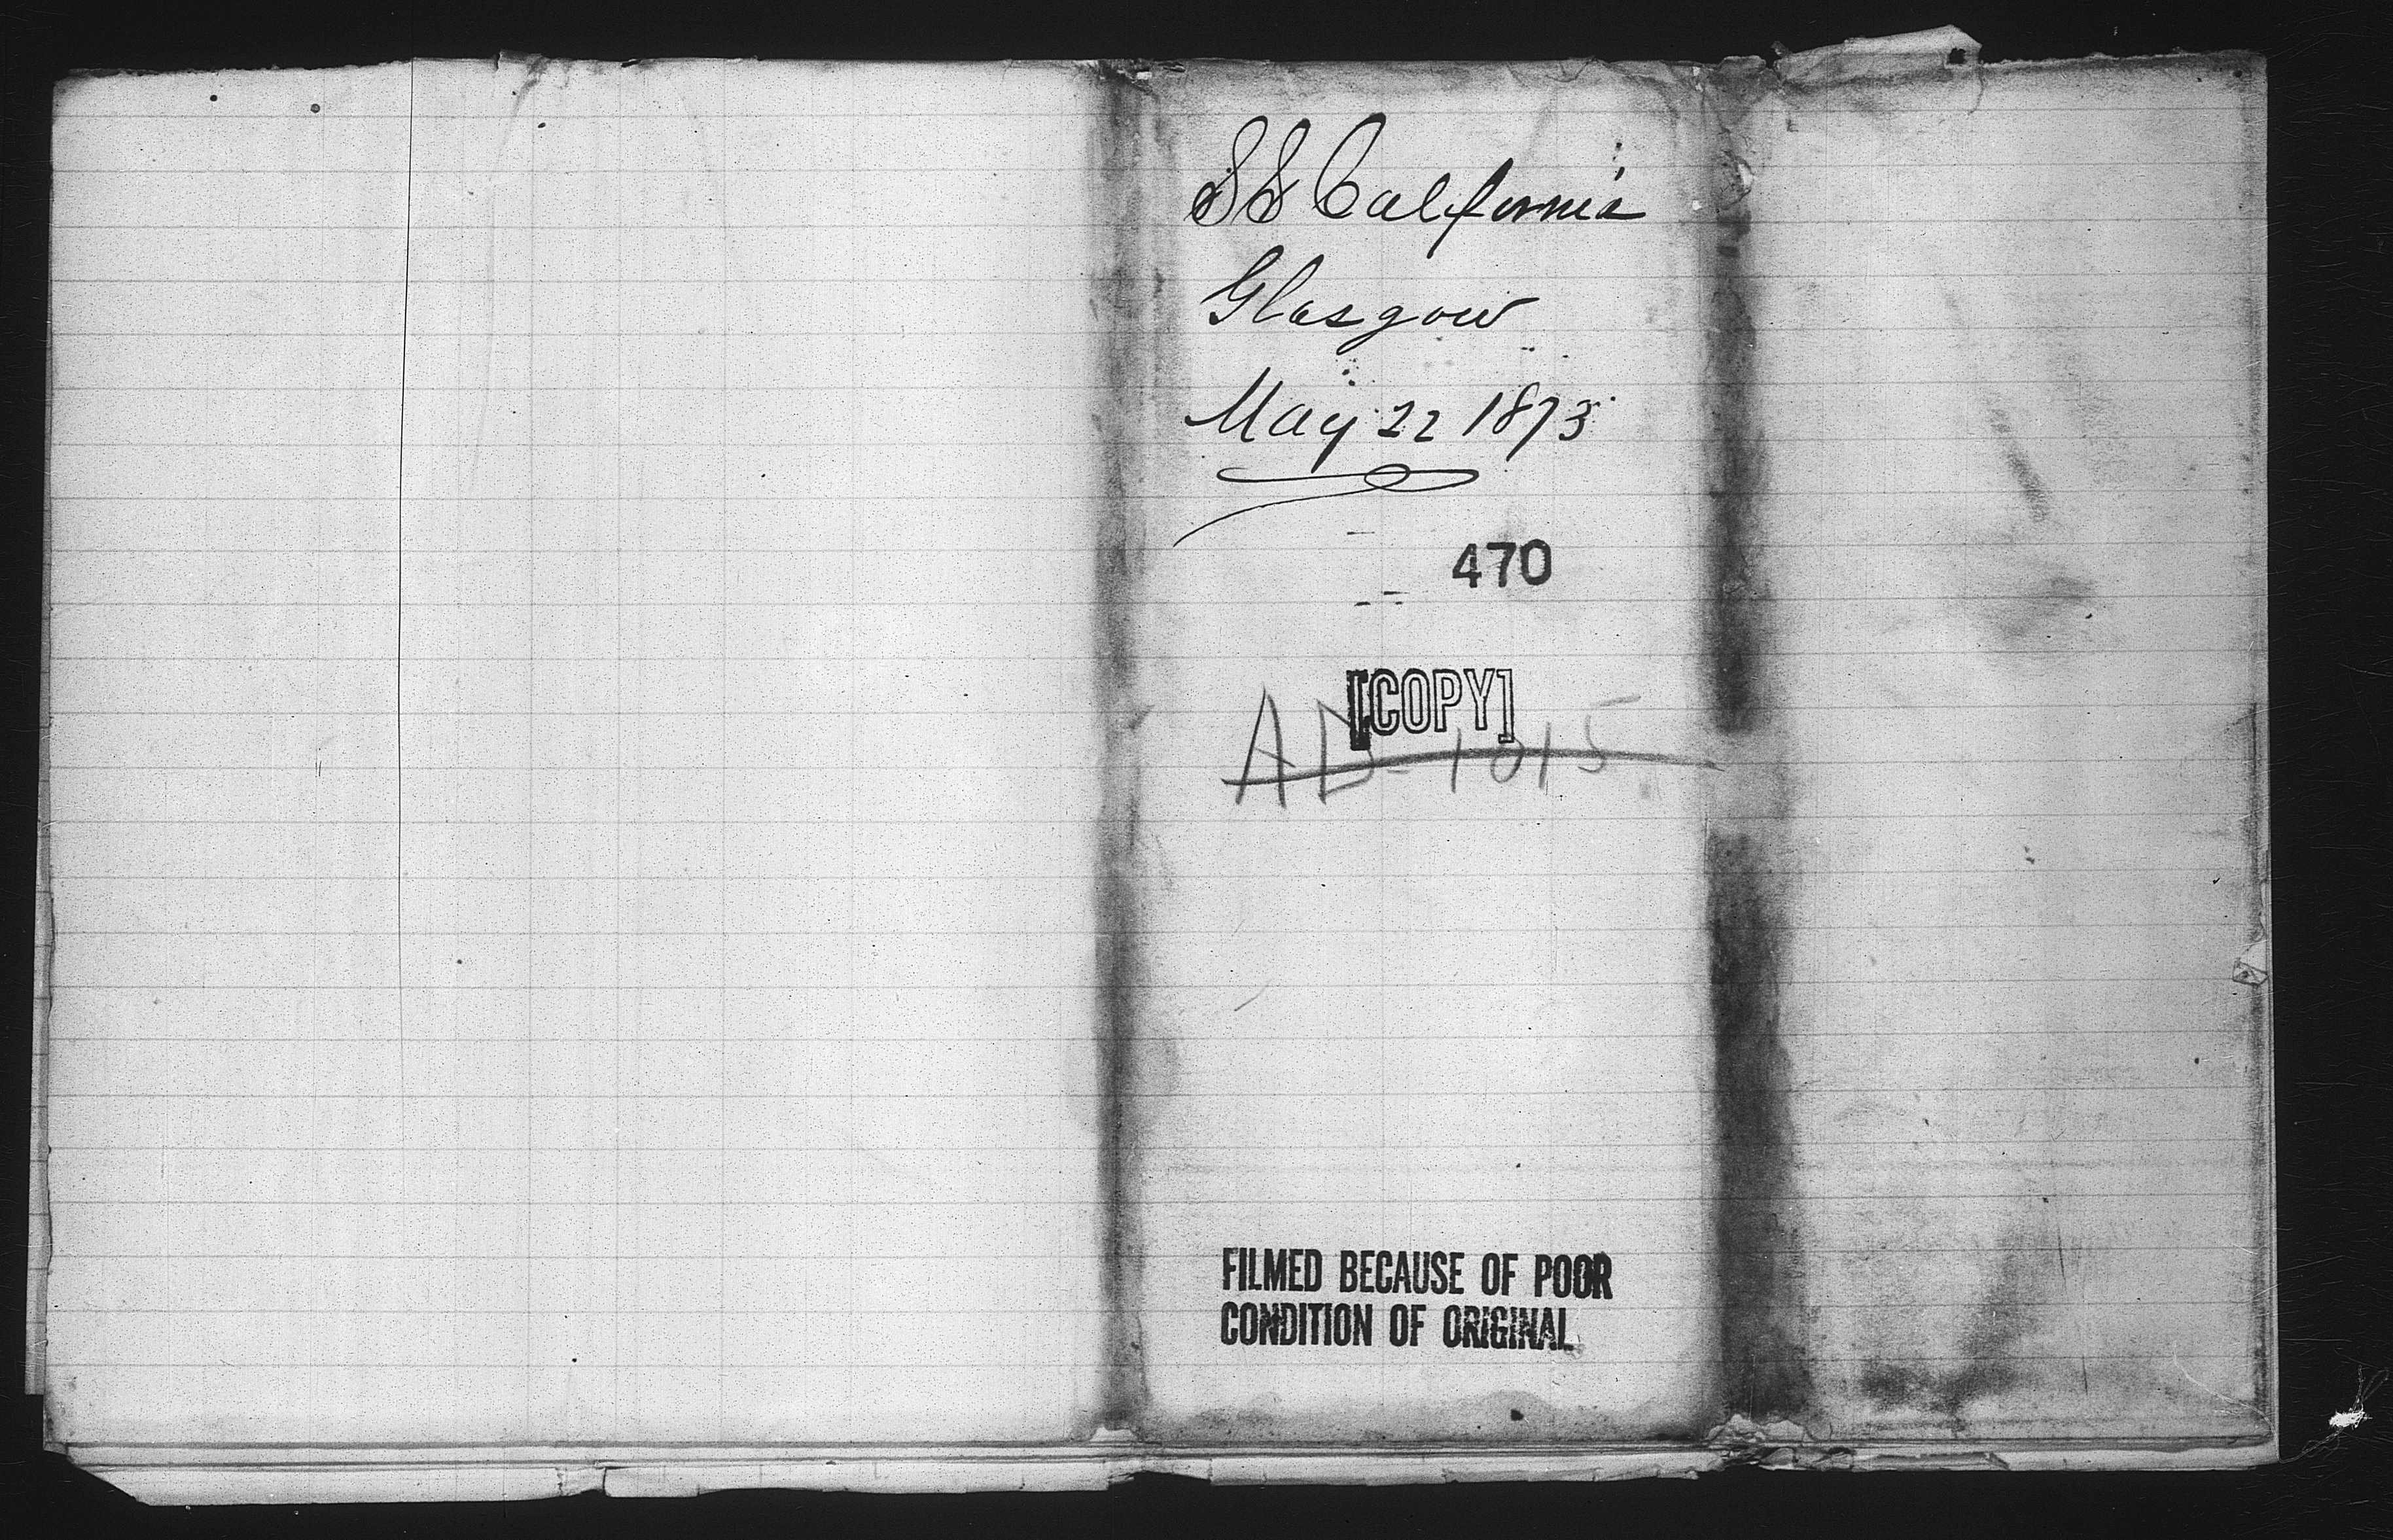 SS California
Glasgow
May 22 1873
470
[COPY]
AD-1015
FILMED BECAUSE OF POOR
CONDITION OF ORIGINAL